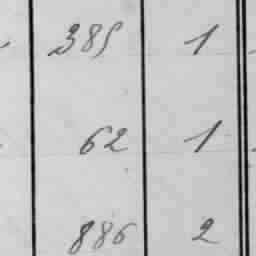 385 1
62 1
886 2